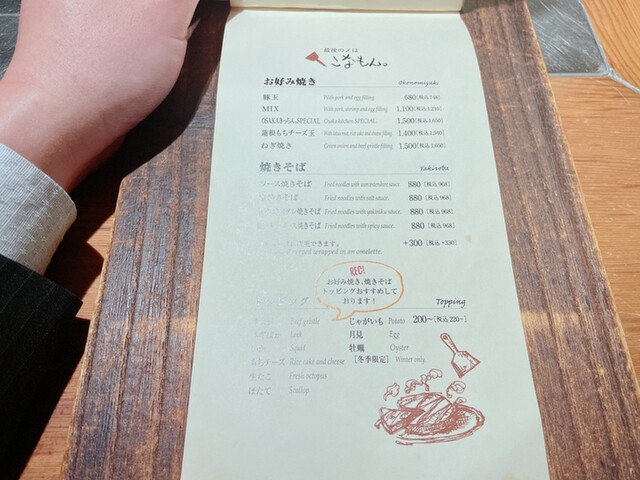 最後の〆は
こなもん。
お好み焼き Okonomiyaki
豚玉 With pork and egg filling. 680 [税込 748]
MIX With pork, shrimp and egg filling. 1,100 [税込 1,210]
OSAKAきっちんSPECIAL Osaka kitchen SPECIAL. 1,500 [税込 1,650]
蓮根もちチーズ玉 With lotus root, rice cake and cheese filling. 1,400 [税込 1,540]
ねぎ焼き Green onions and beef gristle filling. 1,500 [税込 1,650]
焼きそば Yakisoba
ソース焼きそば Fried noodles with worcestershire sauce. 880 [税込 968]
焼きそば Fried noodles with salt sauce. 880 [税込 968]
ダレ焼きそば Fried noodles with yakiniku sauce. 880 [税込 968]
ス焼きそば Fried noodles with spicy sauce. 880 [税込 968]
できます。 +300 [税込 +330]
wrapped in an omelette.
REC!
お好み焼き、焼きそば
トッピングおすすめして
おります!
グ Topping
Beef gristle じゃがいも Potato 200〜 [税込 220〜]
Leek 月見 Egg
Squid 牡蠣 Oyster
もちチーズ Rice cake and cheese [冬季限定] Winter only.
生たこ Fresh octopus
ほたて Scallop